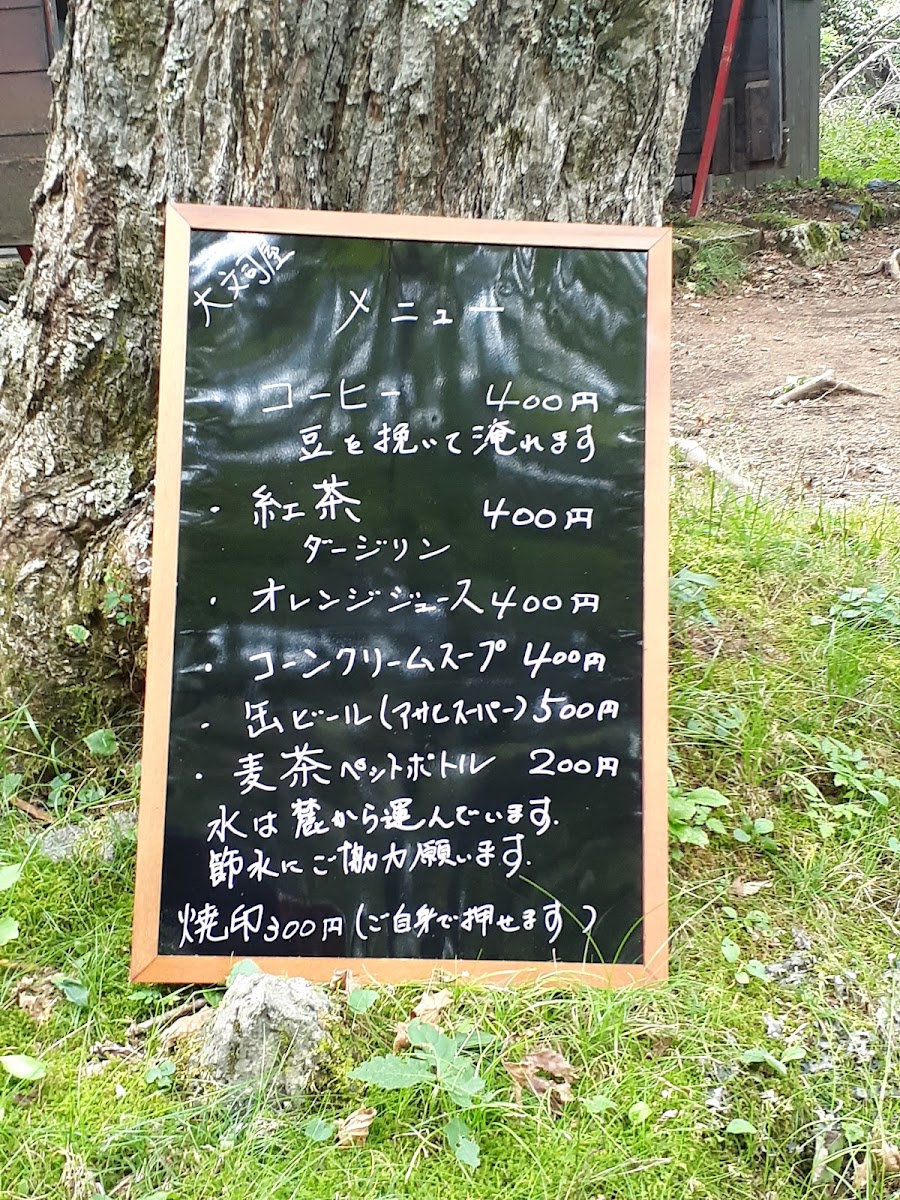 大文司屋
メニュー
コーヒー 400円
豆を挽いて淹れます
・紅茶 400円
ダージリン
・オレンジジュース 400円
・コーンクリームスープ 400円
・缶ビール(アサヒスーパー) 500円
・麦茶ペットボトル 200円
水は麓から運んでいます.
節水にご協力願います.
焼印300円(ご自身で押せます)